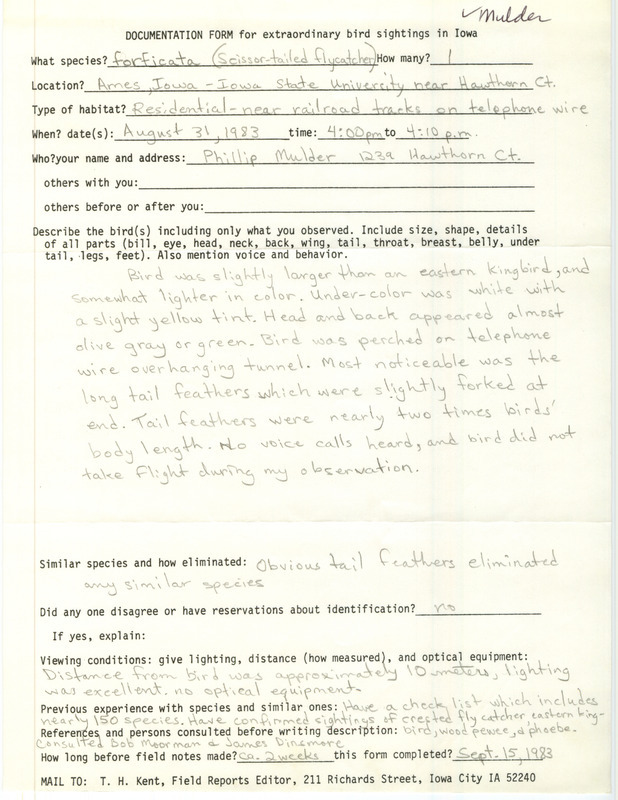 ✓Mulder
DOCUMENTATION FORM for extraordinary bird sightings in Iowa
What species? forficata (Scissor-tailed flycatcher) How many? 1
Location? Ames, Iowa - Iowa State University near Hawthorn Ct.
Type of habitat? Residential - near railroad tracks on telephone wire
When? date(s): August 31, 1983 time: 4:00pm to 4:10 p.m.
Who? your name and address: Phillip Mulder 123a Hawthorn Ct.
others with you:
others before or after you:
Describe the bird(s) including only what you observed. Include size, shape, details
of all parts (bill, eye, head, neck, back, wing, tail, throat, breast, belly, under
tail, legs, feet). Also mention voice and behavior.
Bird was slightly larger than an eastern kingbird, and
somewhat lighter in color. Under-color was white with
a slight yellow tint. Head and back appeared almost
olive gray or green. Bird was perched on telephone
wire overhanging tunnel. Most noticeable was the
long tail feathers which were slightly forked at
end. Tail feathers were nearly two times birds'
body length. No voice calls heard, and bird did not
take flight during my observation.
Similar species and how eliminated: Obvious tail feathers eliminated
any similar species
Did any one disagree or have reservations about identification? no
If yes, explain:
Viewing conditions: give lighting, distance (how measured), and optical equipment:
Distance from bird was approximately 10 meters, lighting
was excellent. no optical equipment.
Previous experience with species and similar ones: Have a check list which includes
nearly 150 species. Have confirmed sightings of crested fly catcher eastern king-
References and persons consulted before writing description: bird, wood pewee, & phoebe.
Consulted Bob Moorman & James Dinsmore
How long before field notes made? ca. 2 weeks this form completed? Sept. 15, 1983
MAIL TO: T. H. Kent, Field Reports Editor, 211 Richards Street, Iowa City IA 52240